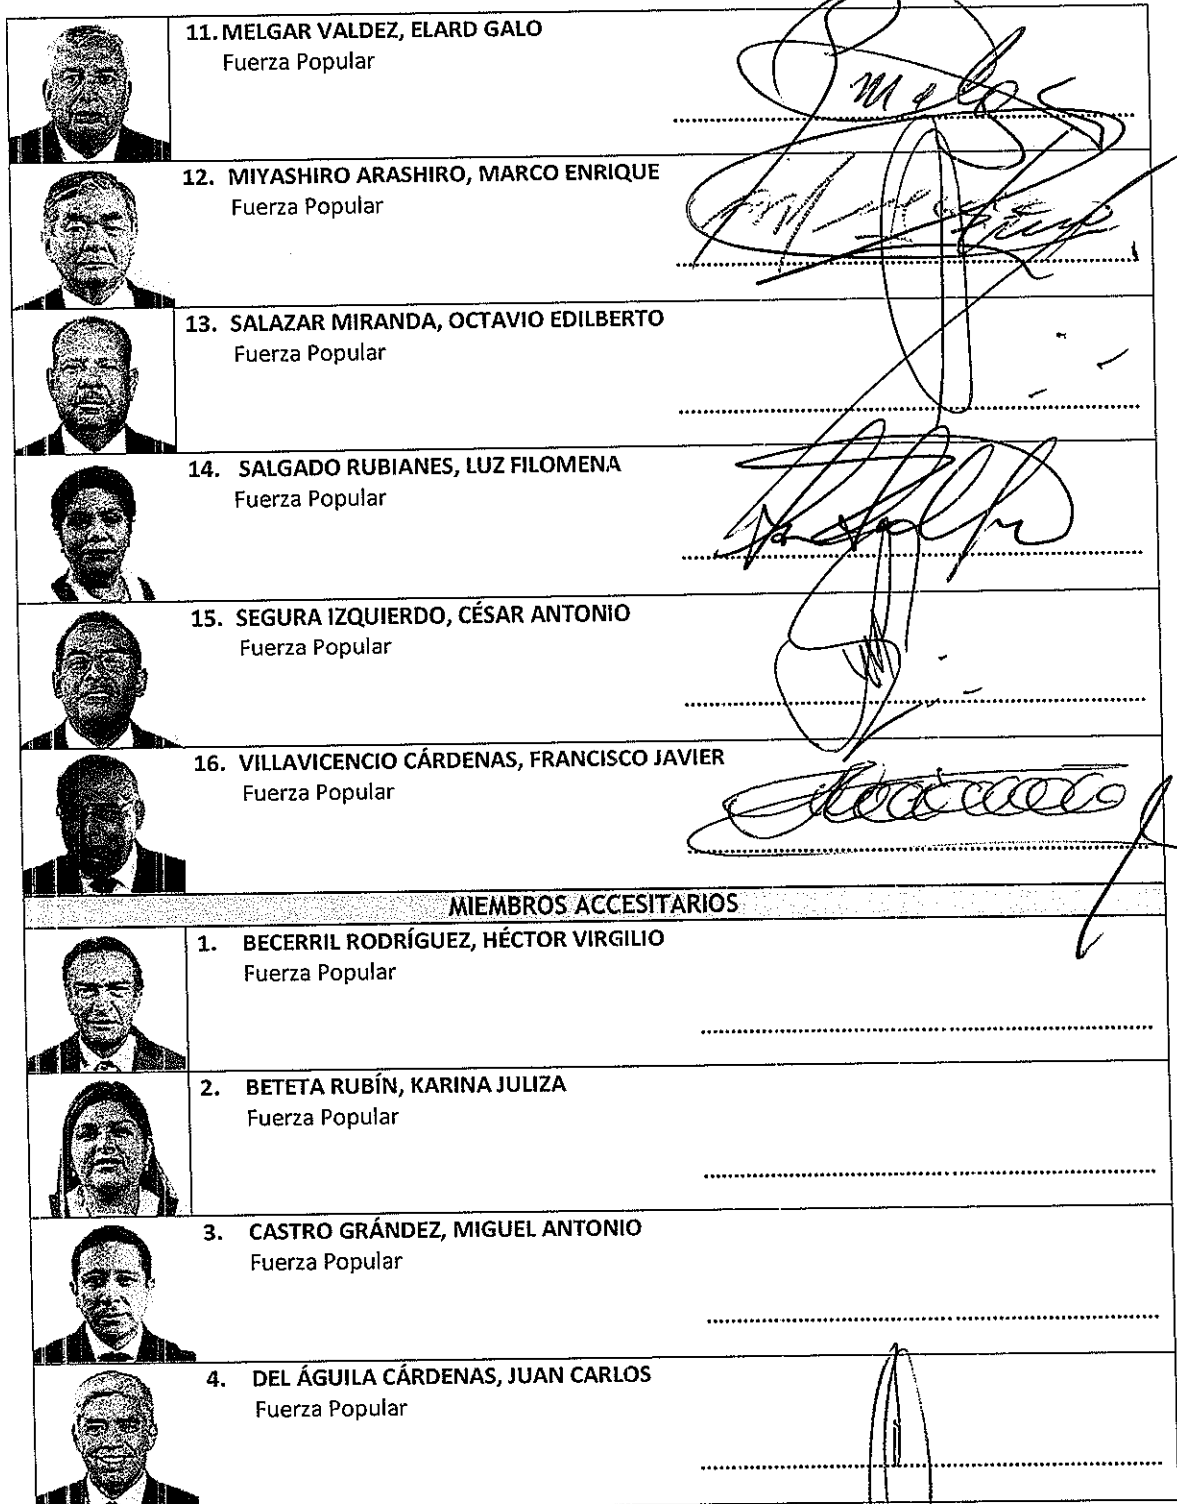 11. MELGAR VALDEZ, ELARD GALO
Fuerza Popular
12. MIYASHIRO ARASHIRO, MARCO ENRIQUE
Fuerza Popular
13. SALAZAR MIRANDA, OCTAVIO EDILBERTO
Fuerza Popular
14. SALGADO RUBIANES, LUZ FILOMENA
Fuerza Popular
15. SEGURA IZQUIERDO, CÉSAR ANTONIO
Fuerza Popular
16. VILLAVICENCIO CÁRDENAS, FRANCISCO JAVIER
Fuerza Popular
MIEMBROS ACCESITARIOS
1. BECERRIL RODRÍGUEZ, HÉCTOR VIRGILIO
Fuerza Popular
2. BETETA RUBÍN, KARINA JULIZA
Fuerza Popular
3. CASTRO GRÁNDEZ, MIGUEL ANTONIO
Fuerza Popular
4. DEL ÁGUILA CÁRDENAS, JUAN CARLOS
Fuerza Popular